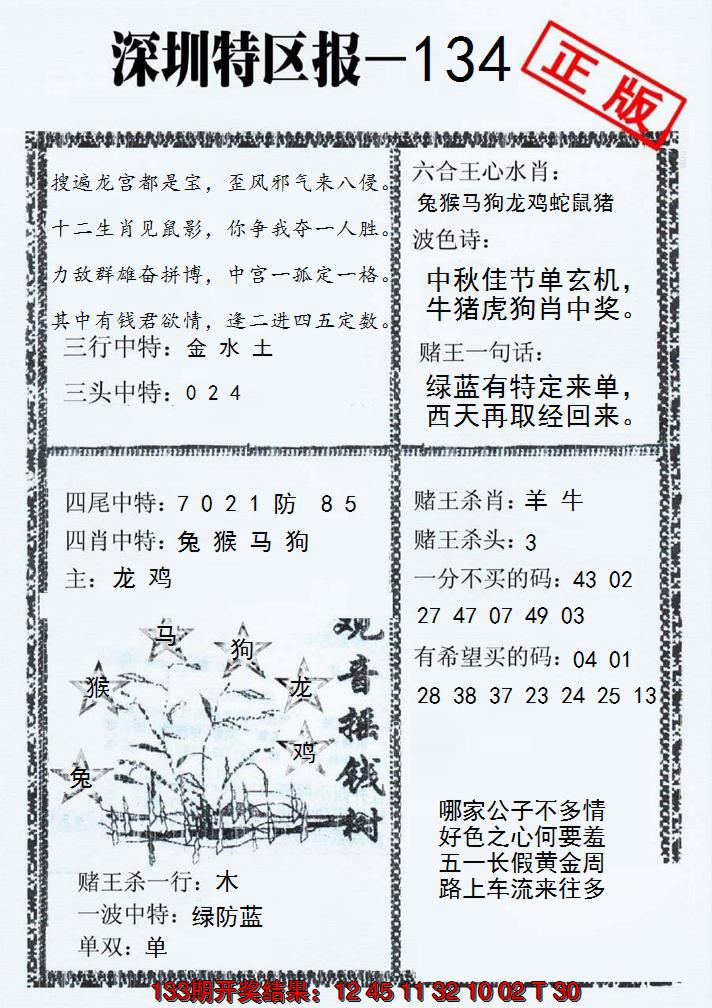 深圳特区报—134
正版
搜遍龙宫都是宝，歪风邪气来八侵。
十二生肖见鼠影，你争我夺一人胜。
力敌群雄奋拼博，中宫一孤定一格。
其中有钱君欲情，逢二进四五定数。
三行中特：金 水 土
三头中特：0 2 4
六合王心水肖：
兔猴马狗龙鸡蛇鼠猪
波色诗：
中秋佳节单玄机，
牛猪虎狗肖中奖。
赌王一句话：
绿蓝有特定来单，
西天再取经回来。
四尾中特：7 0 2 1 防 8 5
四肖中特：兔 猴 马 狗
主：龙 鸡
马
狗
猴
龙
鸡
兔
观音摇钱树
赌王杀一行：木
一波中特：绿防蓝
单双：单
赌王杀肖：羊 牛
赌王杀头：3
一分不买的码：43 02
27 47 07 49 03
有希望买的码：04 01
28 38 37 23 24 25 13
哪家公子不多情
好色之心何要羞
五一长假黄金周
路上车流来往多
133期开奖结果：12 45 11 32 10 02 T 30